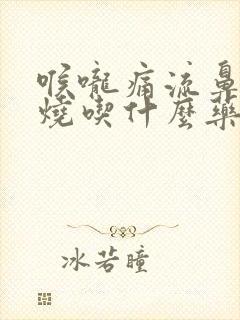 喉嚨痛流鼻
燒喫什麼藥
冰若瞳